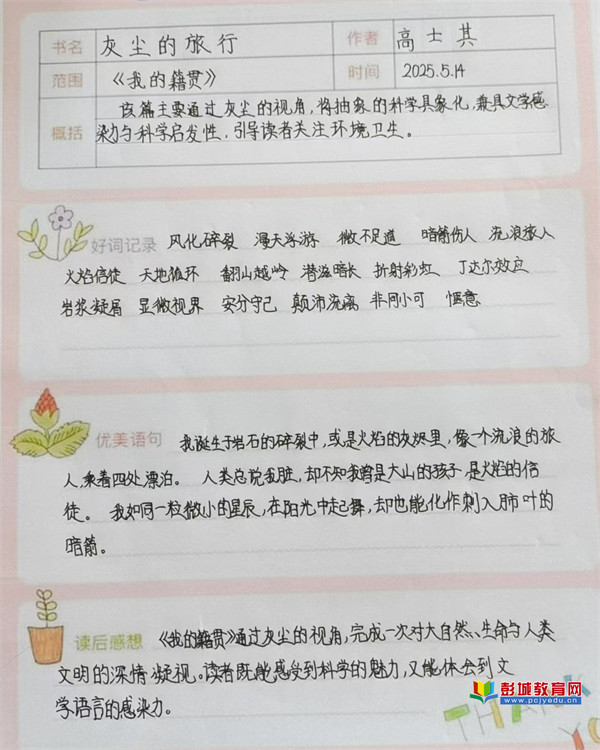 书名 灰尘的旅行 作者 高士其
范围 《我的籍贯》 时间 2025.5.14
概括 该篇主要通过灰尘的视角，将抽象的科学具象化，兼具文学感
染力与科学启发性，引导读者关注环境卫生。
好词记录 风化碎裂 漫天浮游 微不足道 暗箭伤人 流浪旅人
火焰信使 天地循环 翻山越岭 潜滋暗长 折射彩虹 丁达尔效应
岩浆凝屑 显微视界 安分守己 颠沛流离 非同小可 惬意
优美语句 我诞生于岩石的碎裂中，或是火焰的灰烬里，像一个流浪的旅
人，乘着四处漂泊。 人类总说我脏，却不知我曾是大山的孩子，是火焰的信
徒。 我如同一粒微小的星辰，在阳光中起舞，却也能化作刺入肺叶的
暗箭。
读后感想 《我的籍贯》通过灰尘的视角，完成一次对大自然、生命与人类
文明的深情凝视。读者既能感受到科学的魅力，又能体会到文
学语言的感染力。
彭城教育网
www.pcjyedu.cn
THANK
YO